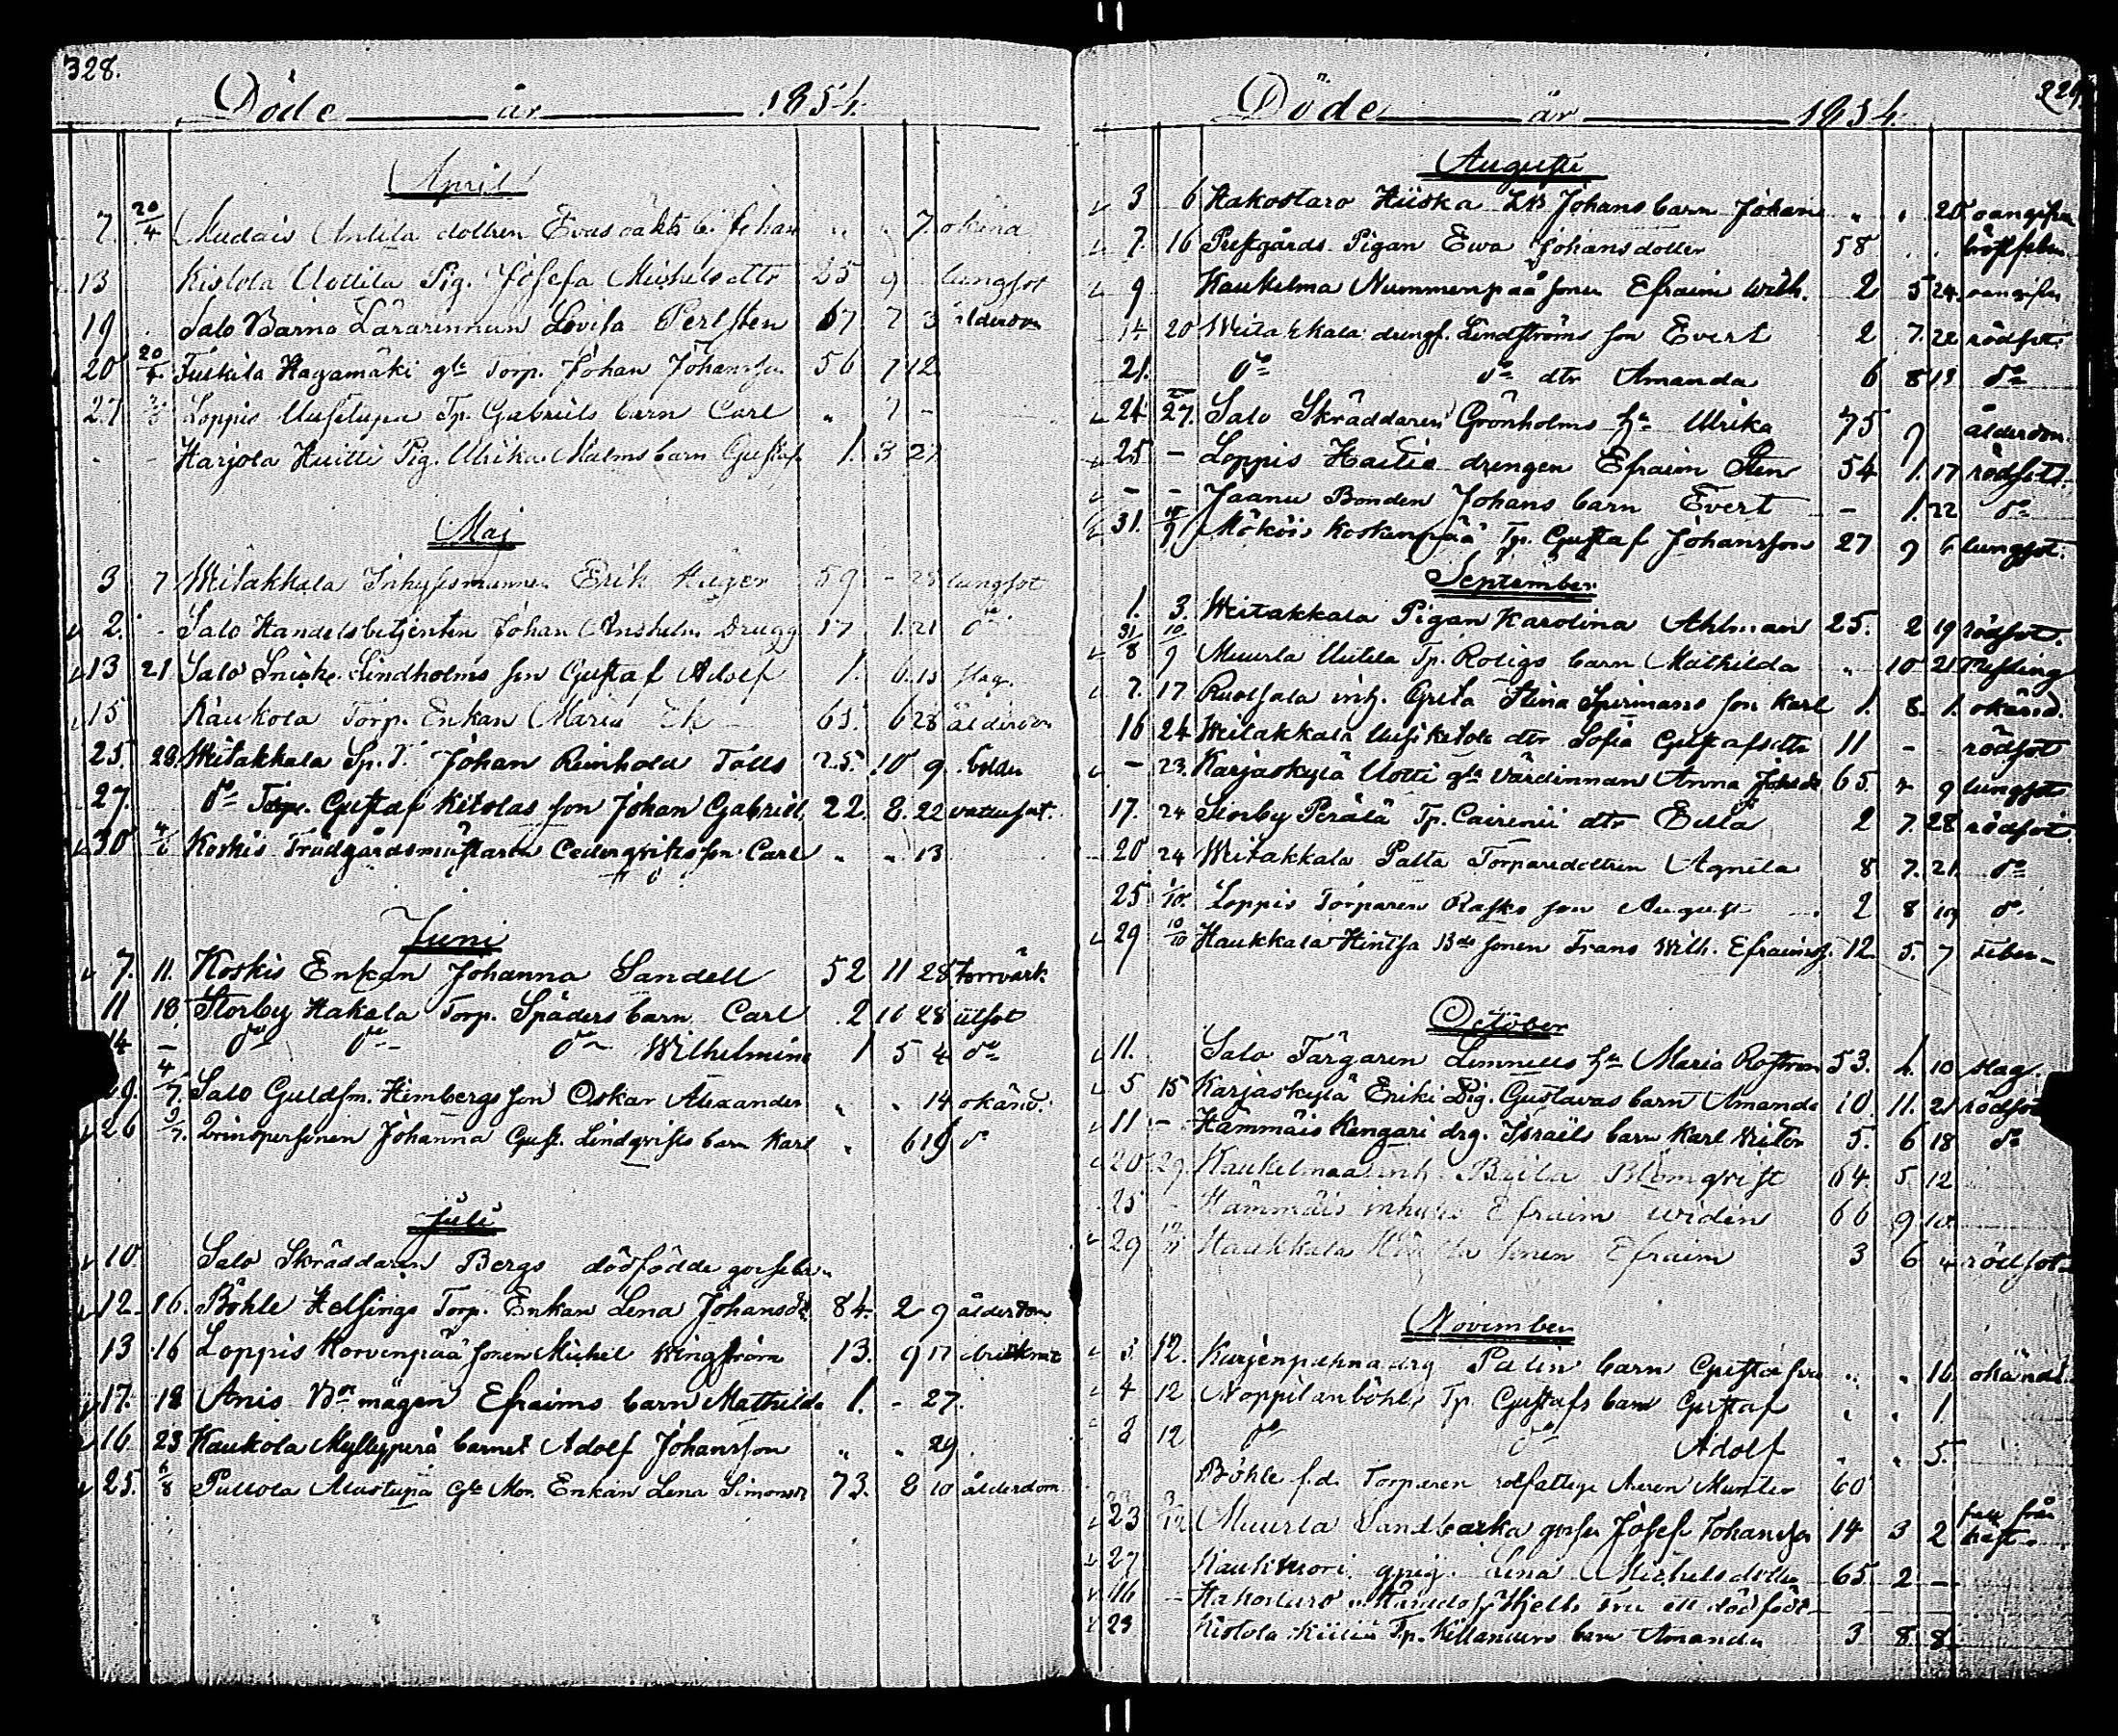 328.
Döde år 1854.
April
7. 20/4 Mudais Anttila dottren Evas oäkta b. Johan " " 7. okänd
13 Kistola Uotila Pig. Josefa Michelsdttr 25 9 lungsot
19 Salo Barna Lärarinnan Lovisa Perlsten 67 7 3 ålderdom
20 20/4 Tuskila Hagamäki gle Torp. Johan Johansson 56 7 12
27 Loppis Uusitupa Tp. Gabriels barn Carl " 7 -
- - Harjola Huitti Pig. Ulrika Malms barn Gustaf 1. 3 27
Maj
3 7 Veitakkala Inhysesmannen Erik Häger 59 - 28 lungsot
2. - Salo Handelsbetjenten Johan Anshelm Drugg 17 1. 21 do
13 21 Salo Snick. Lindholms son Gustaf Adolf 1. 6. 13 slag.
15 Kaukola Torp. Enkan Maria Ek 63. 6 28 ålderdom
25. 28. Weitakkala Sp. T. Johan Reinhold Tålls 25. 10 9
27. do Torp. Gustaf Kitolas son Johan Gabriel. 22. 8. 22 vattusot.
30 4/6 Koskis Trädgårdsmästaren Cederqvists son Carl " " 13
Juni
7. 11. Koskis Enkan Johanna Sandell 52 11 28 torrvärk
11 18 Storby Hakala Torp. Späders barn Carl 2 10 28 utsot
14 - do do do Wilhelmina 1 5 4 do
19. 4/7. Salo Guldsm. Himbergs son Oskar Alexander " " 14 okänd.
26 9/7. Qvinspersonen Johanna Gust. Lindqvists barn Karl " 6 19 do
Juli
10 Salo Skräddaren Bergs dödfödde gossebarn
12. 16. Böhle Helsings Torp. Enkan Lena Johansdr 84. 2 9 ålderdom
13 16 Loppis Korvenpää sonen Michel Wingström 13. 9 17
17. 18 Anis Bn mågen Efraims barn Mathilda 1. - 27.
16. 23 Kaukola Myllyperä barnet Adolf Johansson " " 29.
25. 6/8 Pullola Alastupa gle Mor. Enkan Lena Simonsdr 73. 8 10 ålderdom.
329.
Döde år 1854.
Augusti
3 6 Hakostaro Hiiska Johans barn Johan " " 25 oangifven
7. 16 Prestgårds Pigan Ewa Johansdotter 58 " "
9 Haukelma Nummenpää sonen Efraim Wilh. 2 5 24 oangifven
14 20 Weitakkala drengs. Lindströms son Evert 2 7. 22 rödsot.
21. do do dtr Amanda 6 8 13 do
24 27. Salo Skräddaren Grönholms hu Ulrika 75 9 ålderdom.
25 - Loppis Haitis drengen Efraim Sten 54 1. 17 rödsot.
- - Jaanu Bonden Johans barn Evert - 1. 22 do
31. 10/9 Mökois Koskenpää Tp. Gustaf Johansson 27 9 6 lungsot.
September
1. 3. Weitakkala Pigan Karolina Ahlman 25. 2 19 rödsot.
31/8 10/9 Muurla Uutela Tp. Roligs barn Mathilda " 10 21 Messling
7. 17 Ruotsala inh. Greta Stina Spirmans son Karl 1. 8. 1. okänd.
16 24 Weitakkala Uusikitola dtr Sofia Gustafsdttr 11 - rödsot
- 23. Karjaskylä Uotti gla värdinnan Anna Johsdr 65. 9 lungsot
17. 24 Storby Perälä Tp. Cairenii dtr Edla 2 7. 28 rödsot.
20 24 Weitakkala Palta Torparedottren Agneta 8 7. 21. do
25 1/10. Loppis Torparen Rasks son August 2 8 19 do
29 10/10 Haukkala Hintsa Bds sonen Frans Wilh. Efraimss. 12. 5. 7 feber
October
11. Salo Färgaren Limnells hu Maria Roström 53. 1. 10 slag.
5 15 Karjaskylä Eriki Pig. Gustavas barn Amanda 10. 11. 21 rödsot
11 - Hämmäis Kangari drg. Israels barn Karl Victor 5. 6 18 do
20 29. Kaukelmaa inh. Brita Blomqvist 64. 5 12
25 - Hämmäis inhyse Efraim Widén 66 9 10
29 Haukkala sonen Efraim 3 6 4 rödsot
November
3 12. Kurjenpahna drg Palin barn Gustafva " " 16. okändt.
4 12 Noppilanböhle Tp. Gustafs barn Gustaf " " 1
8 12 do do Adolf " " 5.
Böhle f.d. Torparen rotfattige Aron Munter 60
23 Muurla Sandbacka gosse Josef Johansson 14 3 2 fall från häst.
27 Kaukvuori gpig. Lena Michelsdotter 65. 2 -
16 - Hakostaro Hjelts fru ett dödfödt
23 Kistola Kiilis Tp. Killanders barn Amanda 3 8 8